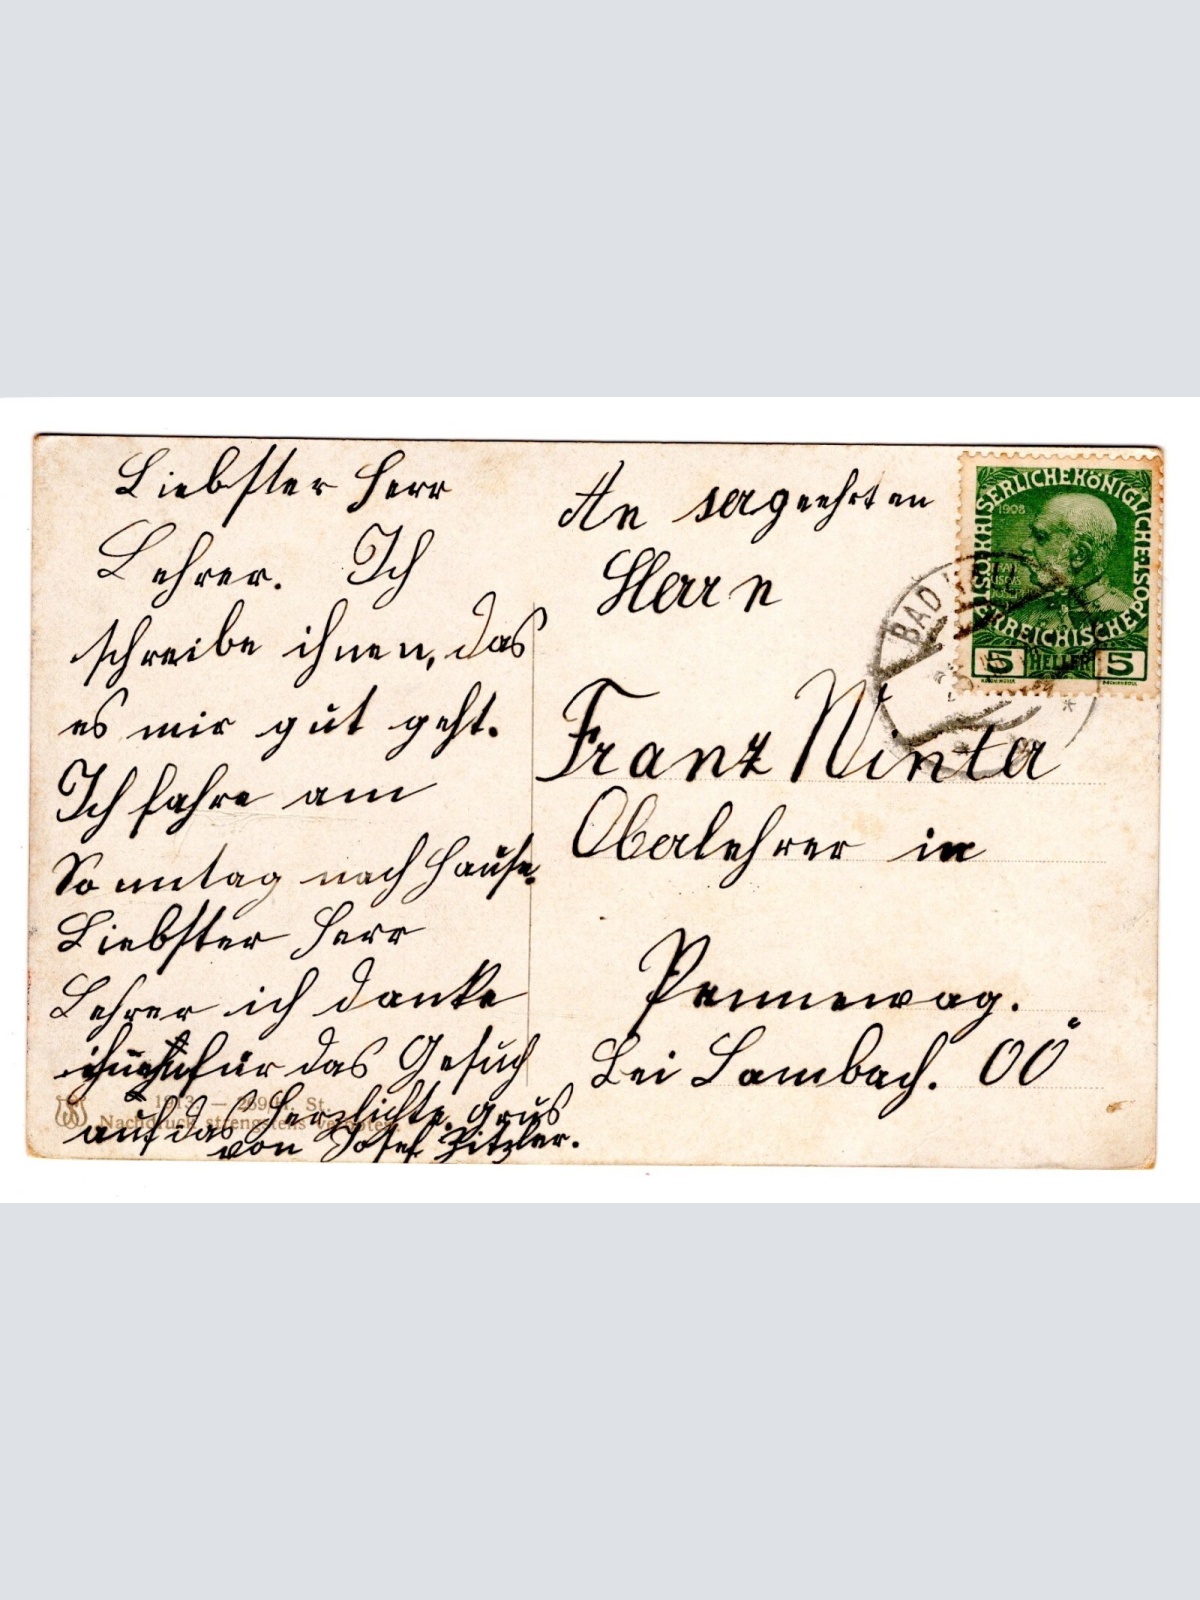 Liebster Herr
Lehrer. Ich
schreibe ihnen, das
es mir gut geht.
Ich fahre am
Sonntag nach Hause.
Liebster Herr
Lehrer ich danke
für das Gesuch
auf das Herzlichte Grus
von Josef Pitzler.
1913 — 269 St.
Nachdruck strengstens verboten.
An sergeehrten
Herrn
Franz Winter
Oberlehrer in
Pennewag.
Bei Lambach. OÖ
KAISERLICHE KÖNIGLICHE ÖSTERREICHISCHE POST
1908
5 HELLER 5
BAD